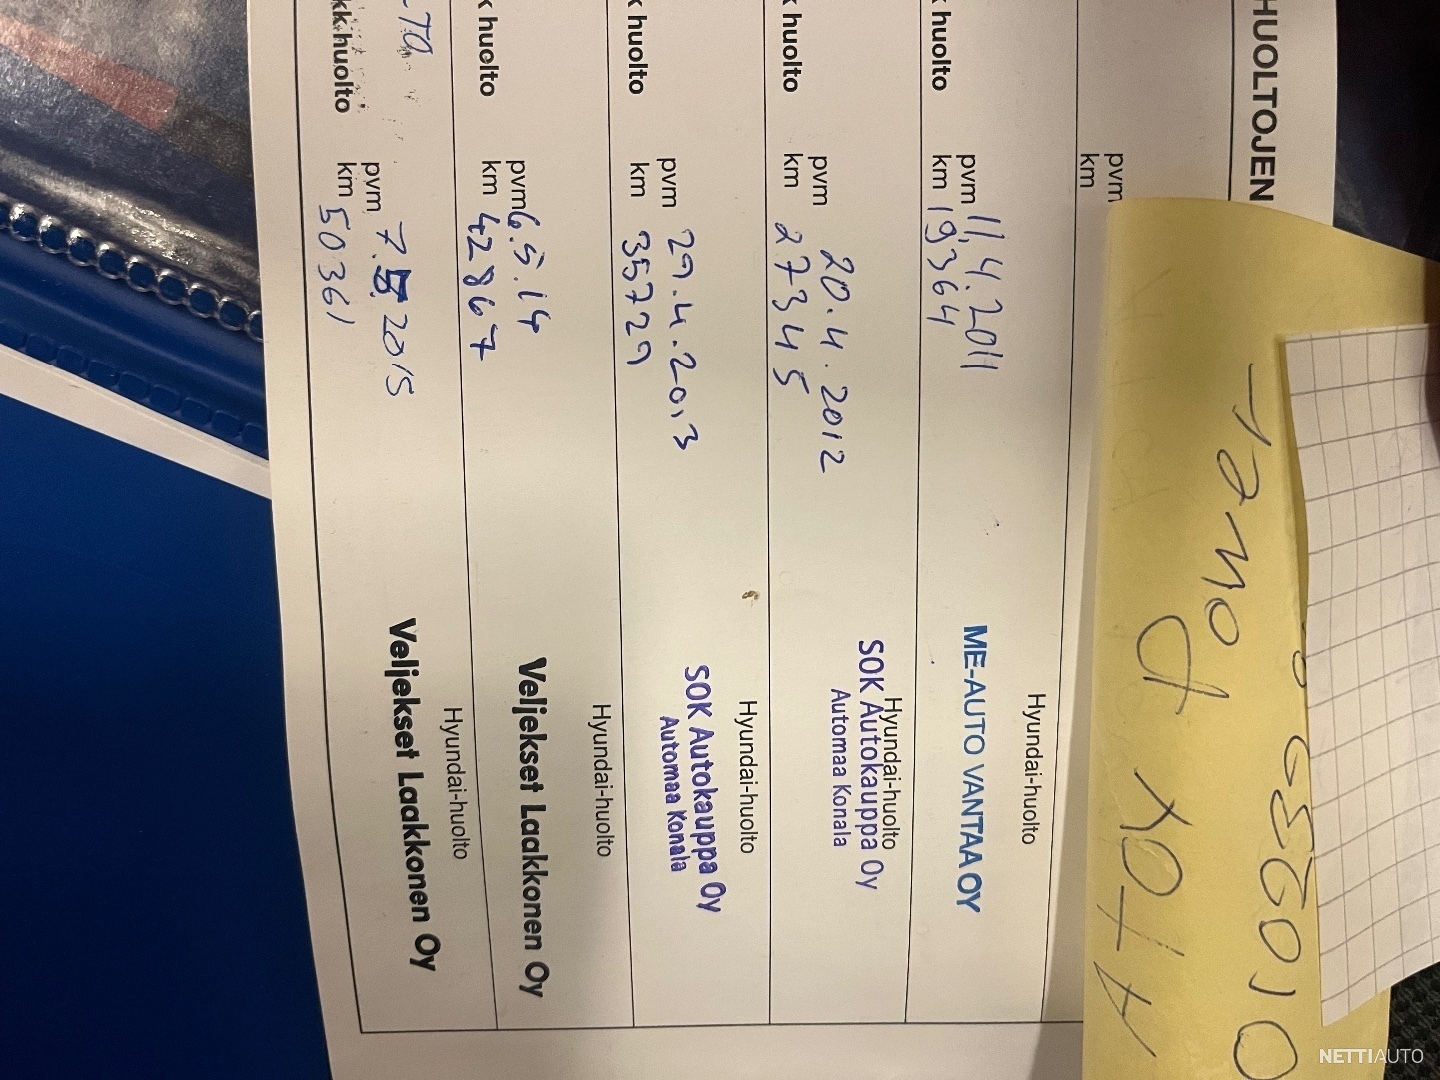 HUOLTOJEN
pvm
km
Hyundai-huolto
k huolto
pvm 11.4.2011
km 19364
ME-AUTO VANTAA OY
Hyundai-huolto
k huolto
pvm 20.4.2012
km 27345
SOK Autokauppa Oy
Automaa Konala
Hyundai-huolto
k huolto
pvm 29.4.2013
km 35729
SOK Autokauppa Oy
Automaa Konala
Hyundai-huolto
k huolto
pvm 6.5.14
km 42867
Veljekset Laakkonen Oy
Hyundai-huolto
kk huolto
pvm 7.5.2015
km 50361
Veljekset Laakkonen Oy
NETTIAUTO